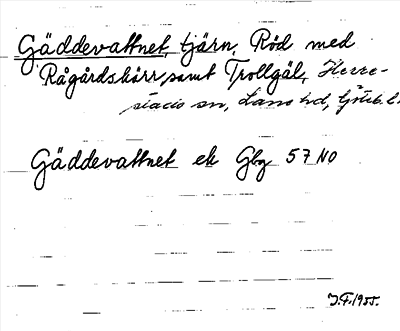 Gäddevattnet, tjärn, Röd med
Rågårdskärr, samt Trollgäl, Herre-
stads sn, Lane hd, Gbg. l.
Gäddevattnet ek Gbg 57 NO
J.F. 1955.